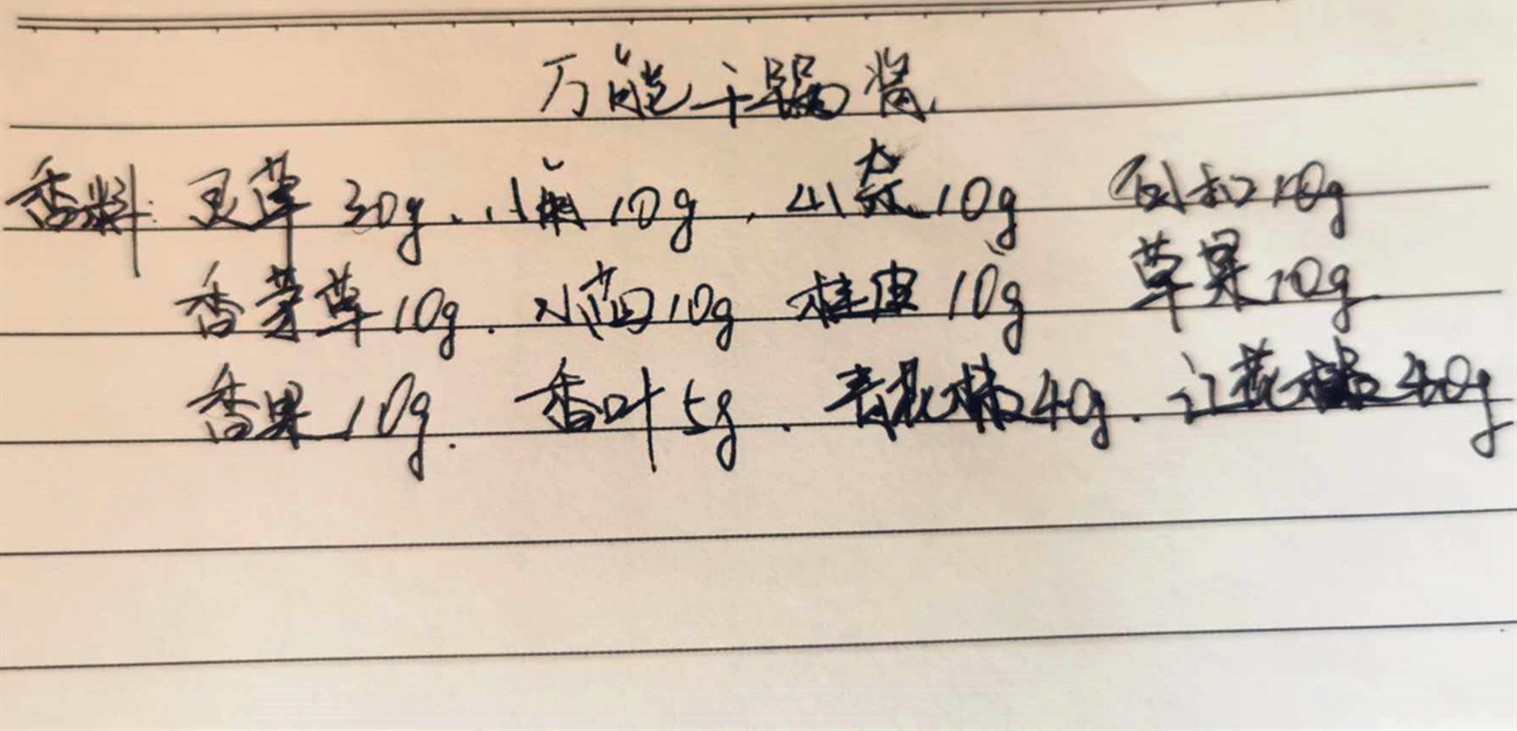 万能干锅酱
香料: 灵草30g、八角10g、山奈10g 白扣10g
香茅草10g、小茴10g 桂皮10g 草果10g
香果10g. 香叶5g、青花椒40g、红花椒40g